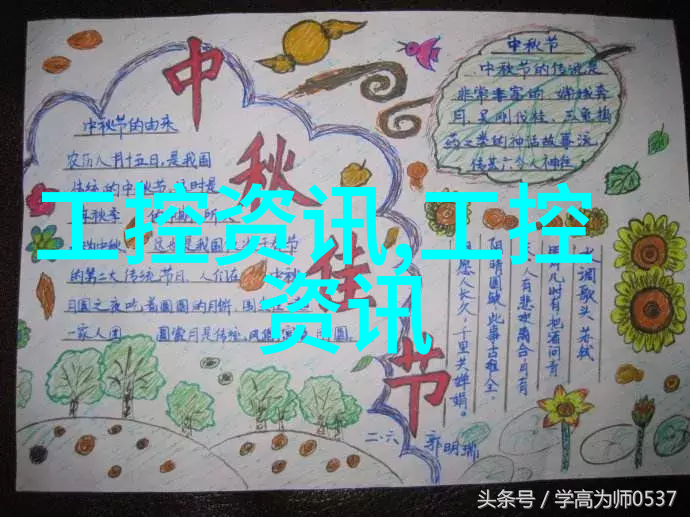 中秋佳节
中秋节的由来
农历八月十五日,是我国
传统的中秋节,这时是
年秋季
所以中秋
的第二大传统节日,人们在中秋
月圆之夜吃着圆圆的月饼,
一家人团圆
中秋节
中秋节的传说是
非常丰富的,嫦娥奔
月,吴刚伐桂,玉兔捣
药之类的神话故事流
传甚广,令人神往
水调歌头 苏轼
明月几时有把酒问青
人有悲欢离合月有
阴晴圆缺此事古难全。
但愿人长久,千里共婵娟。
二·六 郭明瑞
工控资讯,工控
资讯
头条号/学高为师0537